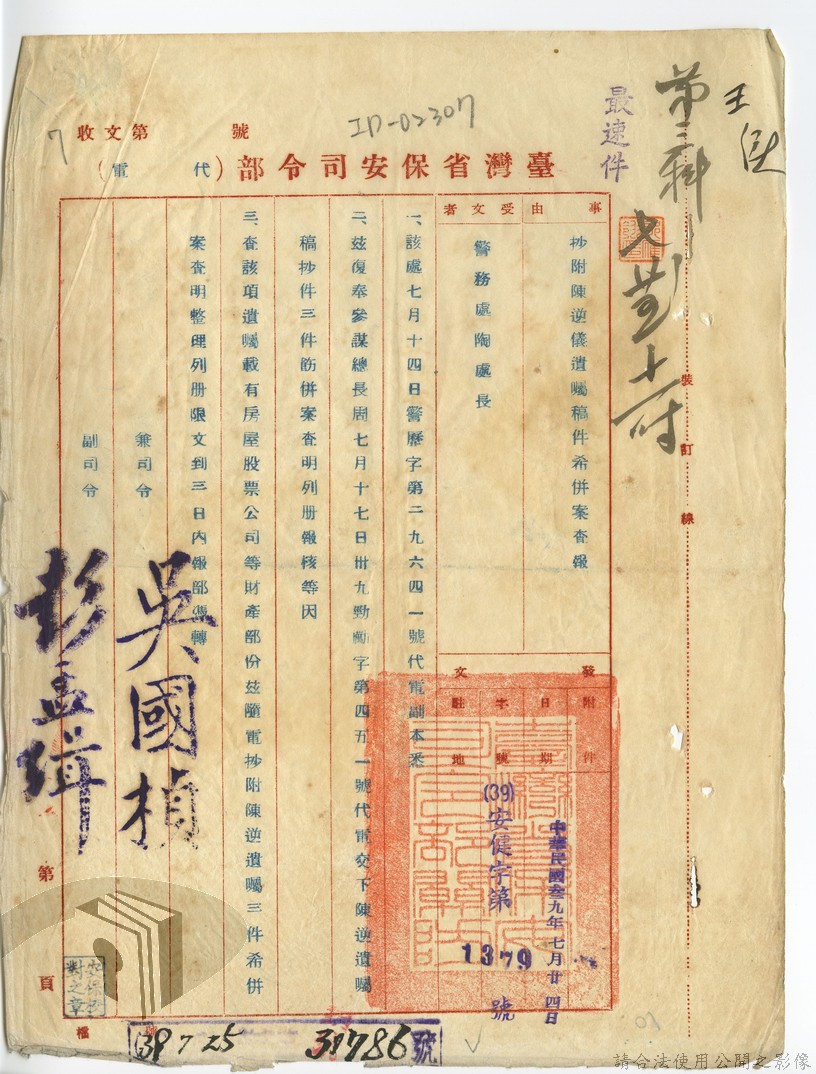 最速件
王
第三科
收文第 號
7
ID-02307
臺灣省保安司令部(代電)
事由
抄附陳逆儀遺囑稿件希併案查報
受文者
警務處陶處長
發文
附件
日期
中華民國叁九年七月廿四日
字號
(39)安健字第1379號
駐地
一、該處七月十四日警歷字第二九六四一號代電副本悉
二、茲復奉參謀總長周七月十七日卅九勁動字第四五一號代電交下陳逆遺囑
稿抄件三件飭併案查明列册報核等因
三、查該項遺囑載有房屋股票公司等財產部份茲隨電抄附陳逆遺囑三件希併
案查明整理列册限文到三日內報部憑轉
兼司令 吳國楨
副司令 彭孟緝
裝訂線
第 頁
檔 號
39 7 25
31786
01
請合法使用公開之影像